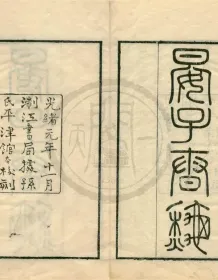 晏子春秋
光緒元年十一月
浙江書局據孫
氏平津館本校刻